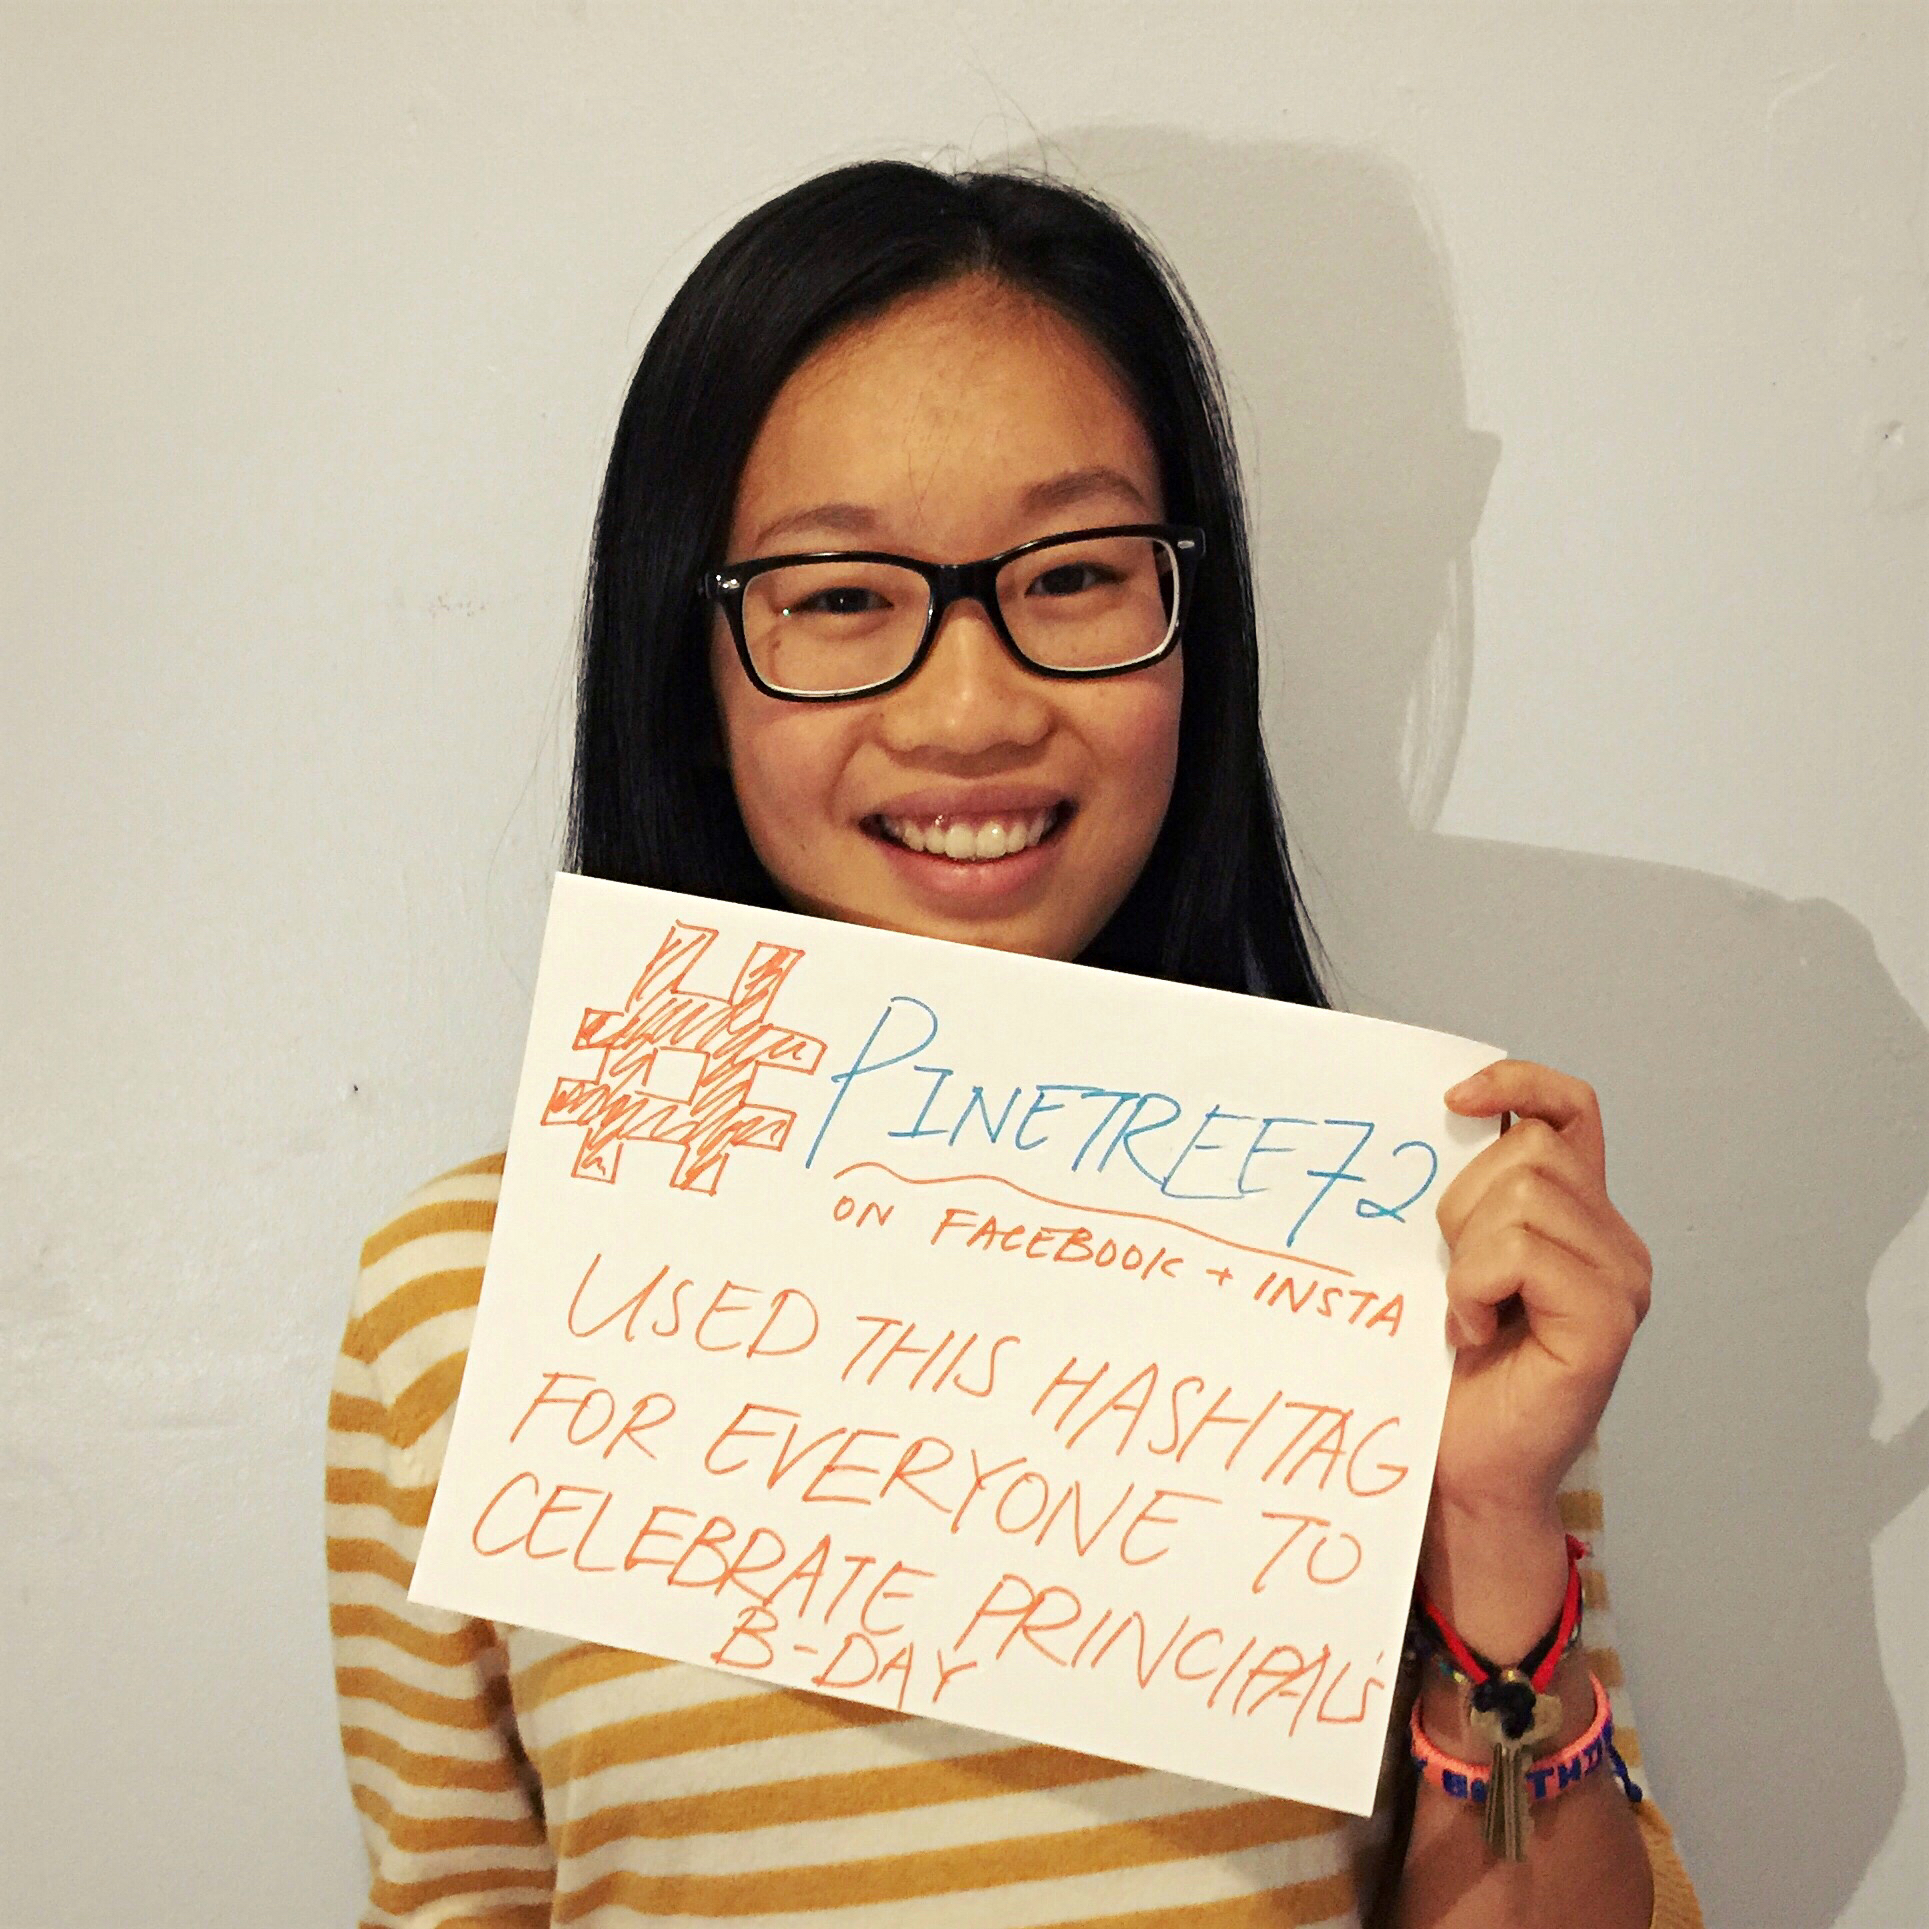 #PINETREE72
ON FACEBOOK + INSTA
USED THIS HASHTAG
FOR EVERYONE TO
CELEBRATE PRINCIPAL'S
B-DAY